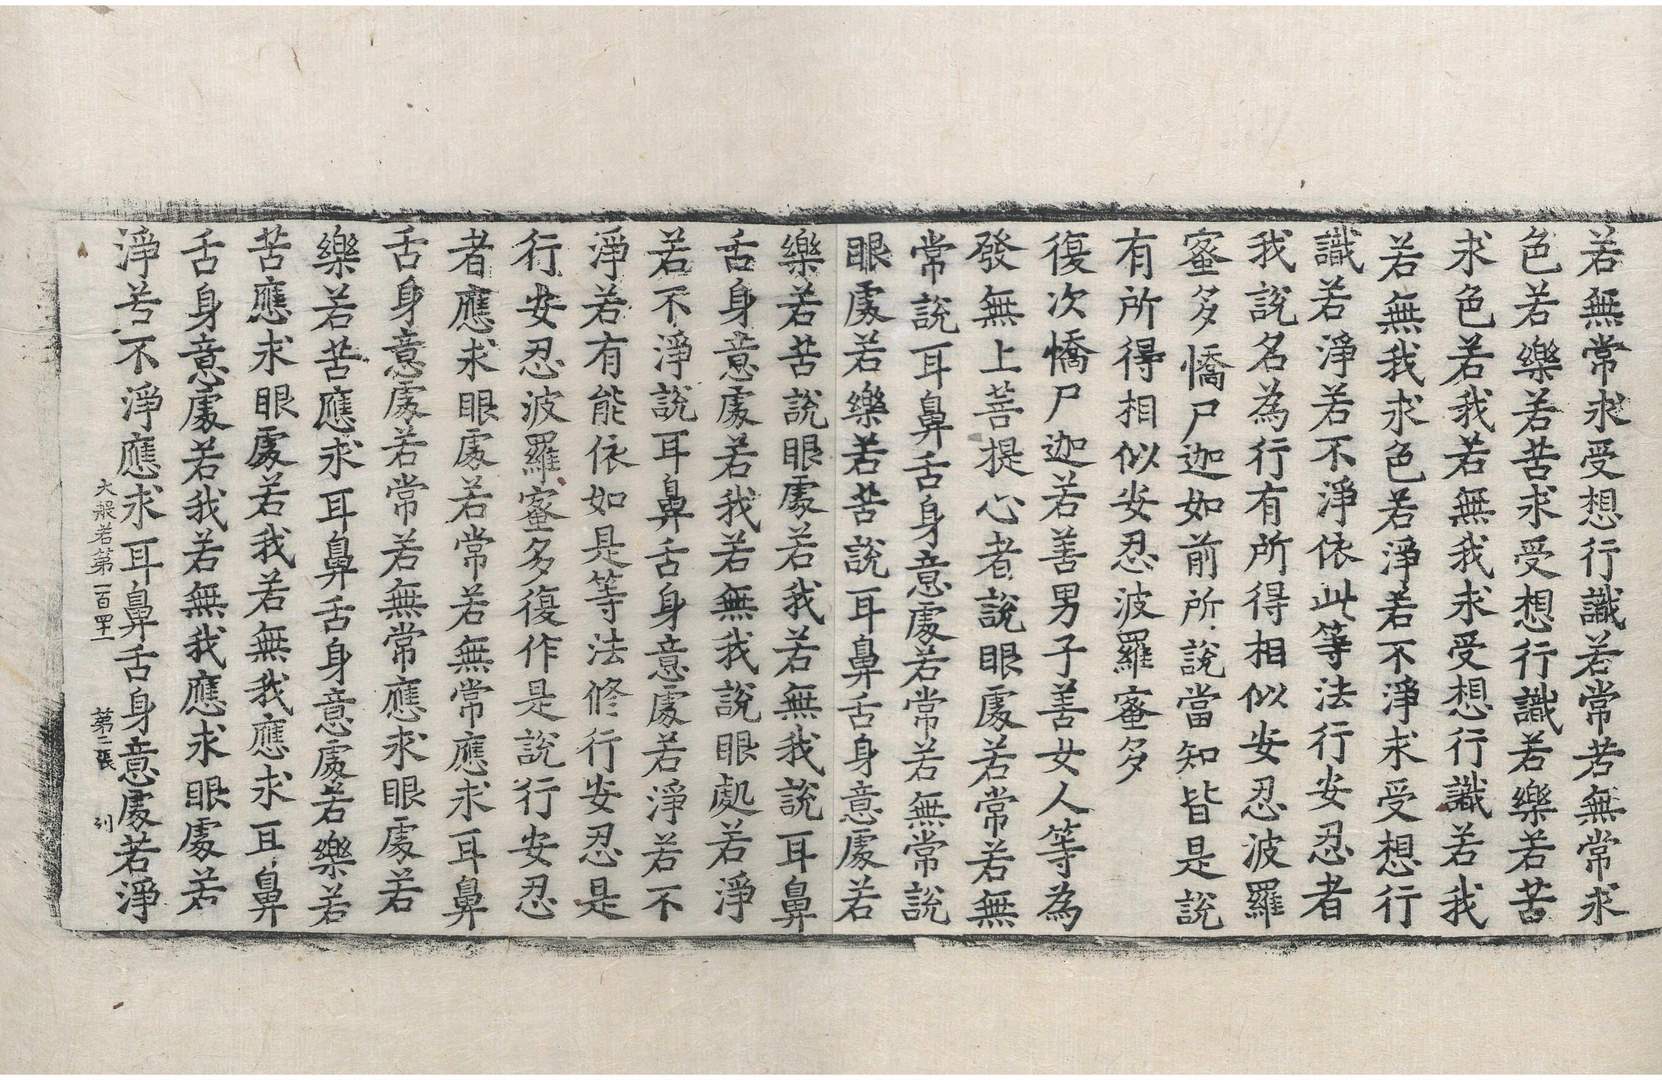 若無常求受想行識若常若無常求
色若樂若苦求受想行識若樂若苦
求色若我若無我求受想行識若我
若無我求色若淨若不淨求受想行
識若淨若不淨依此等法行安忍者
我說名為行有所得相似安忍波羅
蜜多憍尸迦如前所說當知皆是說
有所得相似安忍波羅蜜多
復次憍尸迦若善男子善女人等為
發無上菩提心者說眼處若常若無
常說耳鼻舌身意處若常若無常說
眼處若樂若苦說耳鼻舌身意處若
樂若苦說眼處若我若無我說耳鼻
舌身意處若我若無我說眼處若淨
若不淨說耳鼻舌身意處若淨若不
淨若有能依如是等法修行安忍是
行安忍波羅蜜多復作是說行安忍
者應求眼處若常若無常應求耳鼻
舌身意處若常若無常應求眼處若
樂若苦應求耳鼻舌身意處若樂若
苦應求眼處若我若無我應求耳鼻
舌身意處若我若無我應求眼處若
淨若不淨應求耳鼻舌身意處若淨
大般若第一百四十一 第二張 列